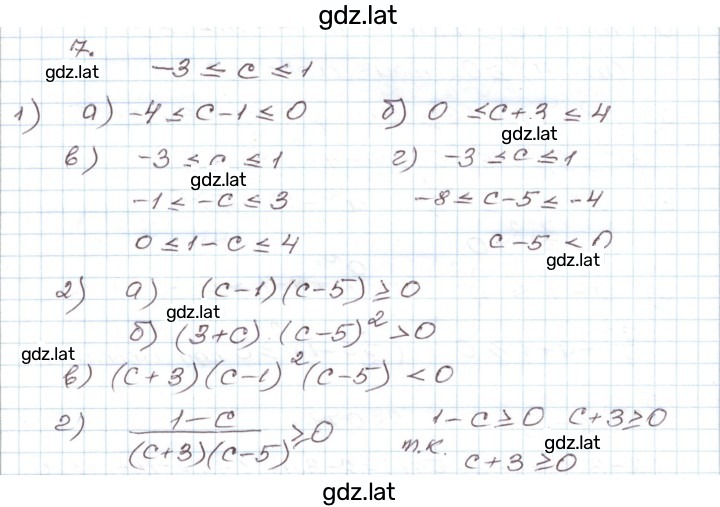 gdz.lat
7.
gdz.lat
-3 ≤ c ≤ 1
1) а) -4 ≤ c-1 ≤ 0 б) 0 ≤ c+3 ≤ 4
gdz.lat
в) -3 ≤ c ≤ 1 г) -3 ≤ c ≤ 1
gdz.lat
-1 ≤ -c ≤ 3 -8 ≤ c-5 ≤ -4
0 ≤ 1-c ≤ 4 c-5 < 0
gdz.lat
2) а) (c-1)(c-5) ≥ 0
gdz.lat
б) (3+c)(c-5)² > 0
gdz.lat
в) (c+3)(c-1)²(c-5) < 0
г) (1-c)/((c+3)(c-5)) ≥ 0 1-c ≥ 0 c+3 ≥ 0
gdz.lat
т.к. c+3 ≥ 0
gdz.lat